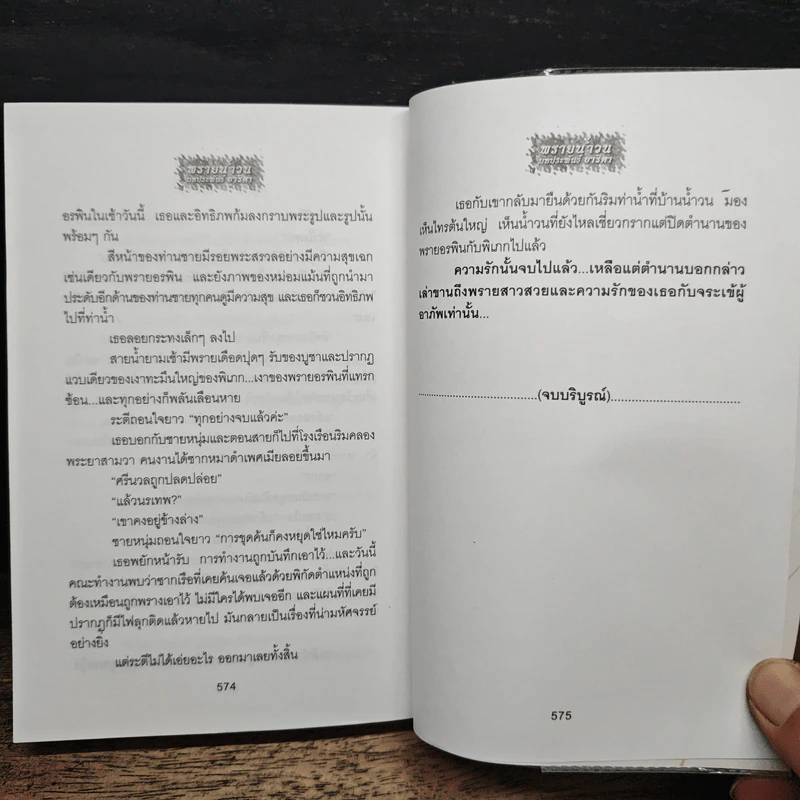 พรายน้ำวน
บทประพันธ์ ยาริดา
อรพินในเช้าวันนี้ เธอและอิทธิภพก้มลงกราบพระรูปและรูปนั้น
พร้อมๆ กัน
สีหน้าของท่านชายมีรอยพระสรวลอย่างมีความสุขเฉก
เช่นเดียวกับพรายอรพิน และยังภาพของหม่อมแม้นที่ถูกนำมา
ประดับอีกด้านของท่านชายทุกคนดูมีความสุข และเธอก็ชวนอิทธิภพ
ไปที่ท่าน้ำ
เธอลอยกระทงเล็กๆ ลงไป
สายน้ำยามเช้ามีพรายเดือดปุดๆ รับของบูชาและปรากฏ
แวบเดียวของเงาทะมึนใหญ่ของพิเภก...เงาของพรายอรพินที่แทรก
ซ้อน...และทุกอย่างก็พลันเลือนหาย
ระตีถอนใจยาว “ทุกอย่างจบแล้วค่ะ”
เธอบอกกับชายหนุ่มและตอนสายก็ไปที่โรงเรือนริมคลอง
พระยาสามวา คนงานได้ซากหมาดำเพศเมียลอยขึ้นมา
“ศรีนวลถูกปลดปล่อย”
“แล้วนรเทพ?”
“เขาคงอยู่ข้างล่าง”
ชายหนุ่มถอนใจยาว “การขุดค้นก็คงหยุดใช่ไหมครับ”
เธอพยักหน้ารับ การทำงานถูกบันทึกเอาไว้...และวันนี้
คณะทำงานพบว่าซากเรือที่เคยค้นเจอแล้วด้วยพิกัดตำแหน่งที่ถูก
ต้องเหมือนถูกพรางเอาไว้ ไม่มีใครได้พบเจออีก และแผนที่ที่เคยมี
ปรากฏก็มีไฟลุกติดแล้วหายไป มันกลายเป็นเรื่องที่น่ามหัศจรรย์
อย่างยิ่ง
แต่ระตีไม่ได้เอ่ยอะไร ออกมาเลยทั้งสิ้น
574
พรายน้ำวน
บทประพันธ์ ยาริดา
เธอกับเขากลับมายืนด้วยกันริมท่าน้ำที่บ้านน้ำวน มอง
เห็นไทรต้นใหญ่ เห็นน้ำวนที่ยังไหลเชี่ยวกรากแต่ปิดตำนานของ
พรายอรพินกับพิเภกไปแล้ว
ความรักนั้นจบไปแล้ว...เหลือแต่ตำนานบอกกล่าว
เล่าขานถึงพรายสาวสวยและความรักของเธอกับจระเข้ผู้
อาภัพเท่านั้น...
........................................(จบบริบูรณ์)........................................
575